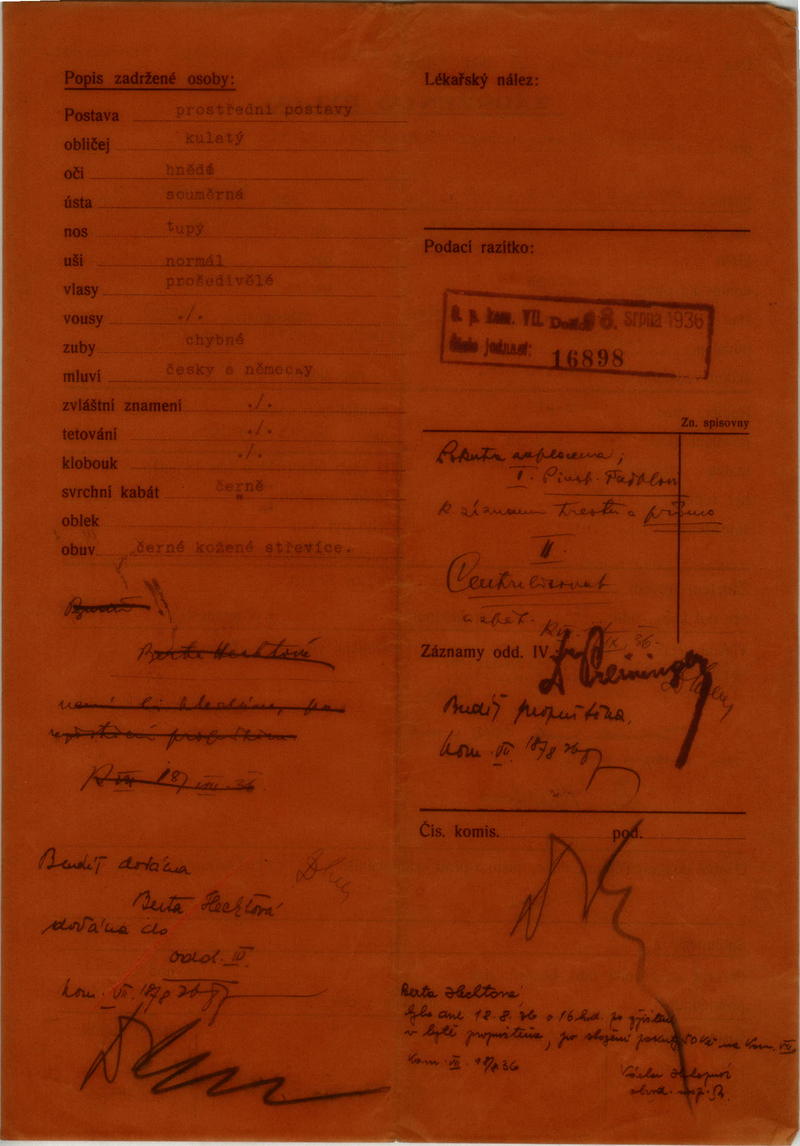 Popis zadržené osoby:
Postava prostřední postavy
obličej kulatý
oči hnědé
ústa souměrná
nos tupý
uši normál
vlasy prošedivělé
vousy ./.
zuby chybné
mluví česky a německy
zvláštní znamení ./.
tetování ./.
klobouk ./.
svrchní kabát černě
oblek "
obuv černé kožené střevíce.
Berta Hechtové
18/VIII. 36
Budiž dodána
Berta Hechtová
dodána do
odd. IV
kom. VII. 18/8
Lékařský nález:
Podací razítko:
kom. VII. Došlo 8. srpna 1936
číslo jednací: 16898
Zn. spisovny
Pokuta zaplacena;
I.
K záznamu trestu a přímo
II.
Centralisovat
a zpět.
IX 36.
Záznamy odd. IV.:
Budiž propuštěna.
kom. VII 18/8
Čís. komis. pod.
Berta Hechtová
bylo dne 18.8.36 o 16 hod. po zjištění
v bytě propuštěna, po složení pokuty 50 Kč na kom. VII
kom. VII. 18/8 36
Václav